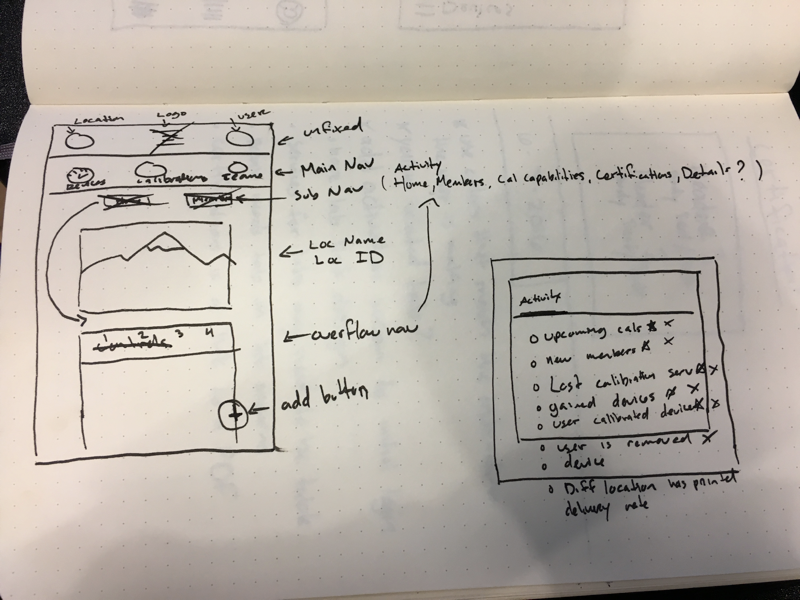 Location
Logo
user
unfixed
Devices
Calibrations
Main Nav
Activity
(Home, Members, Cal capabilities, Certifications, Details?)
Sub Nav
Loc Name
Loc ID
1 2 3 4
overflow nav
add button
+
Activity
upcoming cals
x
new members
x
Last calibration
x
gained devices
x
user calibrated devices
x
user is removed x
device
Diff location has printed
delivery note